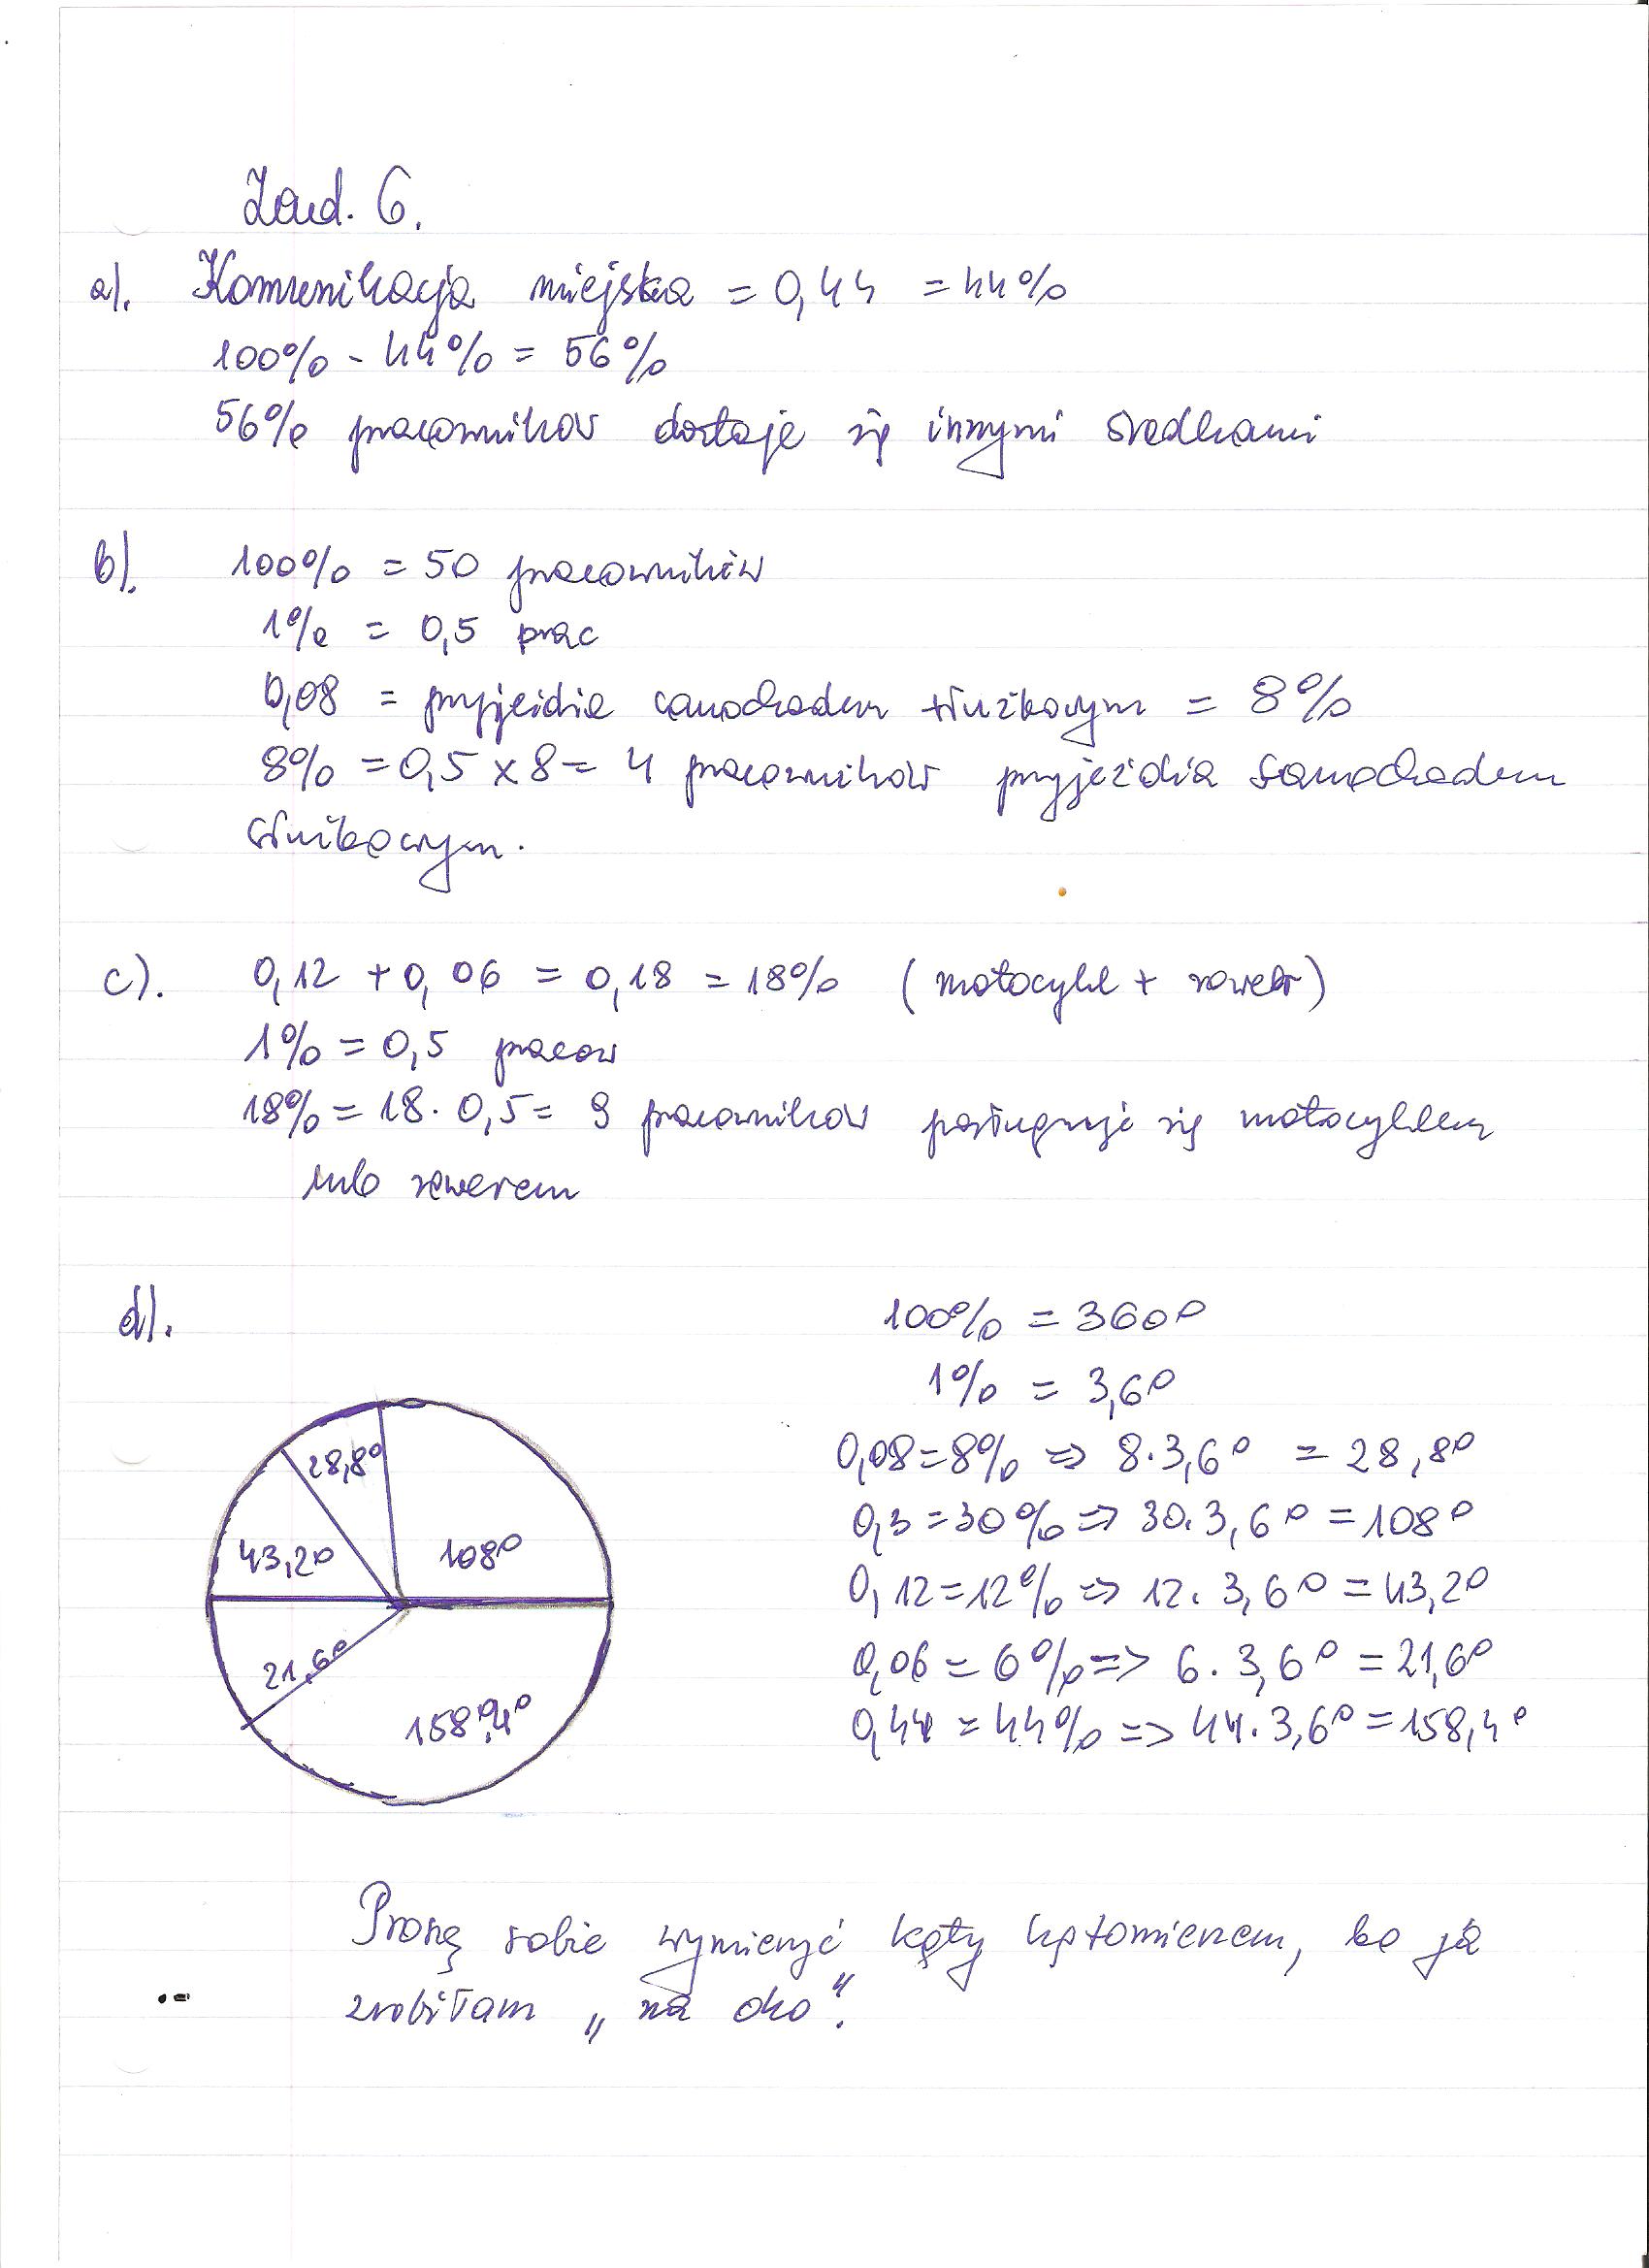 Zad. 6.
a). Komunikacja miejska = 0,44 = 44%
100% - 44% = 56%
56% pracowników dostaje się innymi środkami
b). 100% = 50 pracowników
1% = 0,5 prac
0,08 = przyjeżdża samochodem służbowym = 8%
8% = 0,5 x 8 = 4 pracowników przyjeżdża samochodem
służbowym.
c). 0,12 + 0,06 = 0,18 = 18% (motocykl + rower)
1% = 0,5 pracow
18% = 18 · 0,5 = 9 pracowników posługuje się motocyklem
lub rowerem
d).
100% = 360°
1% = 3,6°
0,08 = 8% => 8 · 3,6° = 28,8°
0,3 = 30% => 30 · 3,6° = 108°
0,12 = 12% => 12 · 3,6° = 43,2°
0,06 = 6% => 6 · 3,6° = 21,6°
0,44 = 44% => 44 · 3,6° = 158,4°
28,8°
43,2° 108°
21,6°
158,4°
Proszę sobie wymierzyć kąty kątomierzem, bo ja
zrobiłam „na oko".